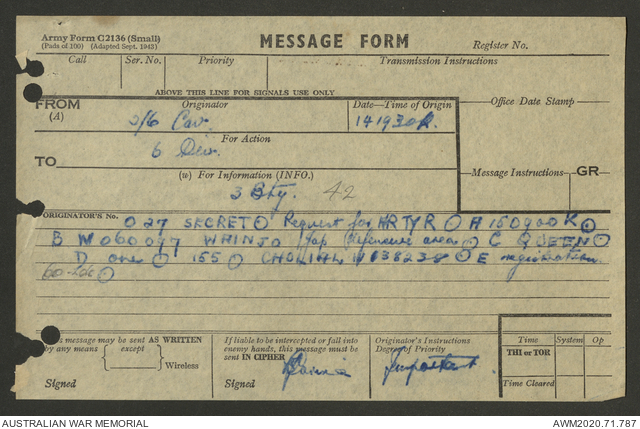 Army Form C2136 (Small)
(Pads of 100) (Adapted Sept. 1943)
MESSAGE FORM
Register No.
Call Ser. No. Priority Transmission Instructions
ABOVE THIS LINE FOR SIGNALS USE ONLY
FROM (A) Originator Date—Time of Origin Office Date Stamp
2/6 Cav. 141930K
For Action
TO 6 Div.
(w) For Information (INFO.) Message Instructions GR
3 Bty. 42
ORIGINATOR'S No.
O 27 SECRET Request for ARTY R A 150900K
B M060097 Jap defensive area C QUEEN
D one 155 M038238 E registration
An message may be sent AS WRITTEN
by any means except
Wireless
Signed
If liable to be intercepted or fall into
enemy hands, this message must be
sent IN CIPHER
Signed
Originator's Instructions
Degree of Priority
Important
Time System Op
THI or TOR
Time Cleared
AUSTRALIAN WAR MEMORIAL AWM2020.71.787